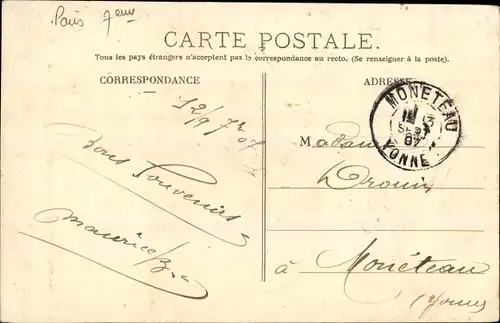 Paris 7ème
CARTE POSTALE.
Tous les pays étrangers n'acceptent pas la correspondance au recto. (Se renseigner à la poste).
CORRESPONDANCE
ADRESSE
MONETEAU
SEPT
07
YONNE
12/9 07
Bons Souvenirs
Maurice
Madame
Drouin
à Monéteau
(Yonne)